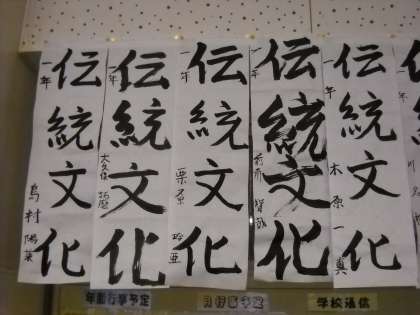 伝統文化
一年
伝統文化
一年
大久保
伝統文化
一年
伝統文化
一年
伝統文化
一年
木原一真
伝
統
文
化
年間行事予定
月行事予定
学校通信